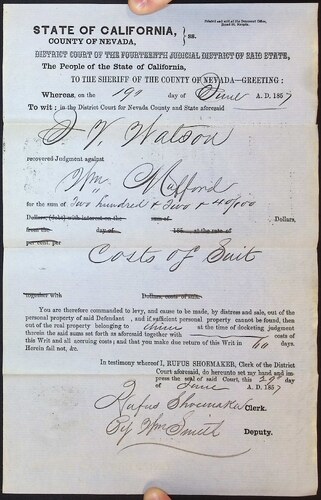 STATE OF CALIFORNIA, } ss.
COUNTY OF NEVADA,
DISTRICT COURT OF THE FOURTEENTH JUDICIAL DISTRICT OF SAID STATE,
The People of the State of California,
TO THE SHERIFF OF THE COUNTY OF NEVADA—GREETING:
Whereas, on the 19th day of June A. D. 1857
To wit: in the District Court for Nevada County and State aforesaid
J. V. Watson
recovered Judgment against
Wm Mefford
for the sum of Two hundred & Two & 40/100
Dollars, (debt) with interest on the sum of Dollars,
from the day of 185 at the rate of
per cent. per
Costs of Suit
together with Dollars, costs of suit.
You are therefore commanded to levy, and cause to be made, by distress and sale, out of the
personal property of said Defendant, and if sufficient personal property cannot be found, then
out of the real property belonging to him at the time of docketing judgment
therein the said sums set forth as aforesaid together with costs of
this Writ and all accruing costs; and that you make due return of this Writ in 60 days.
Herein fail not, &c.
In testimony whereof I, RUFUS SHOEMAKER, Clerk of the District
Court aforesaid, do hereunto set my hand and im-
press the seal of said Court, this 29th day
of June A. D. 1857
Rufus Shoemaker Clerk.
By Wm Smith Deputy.